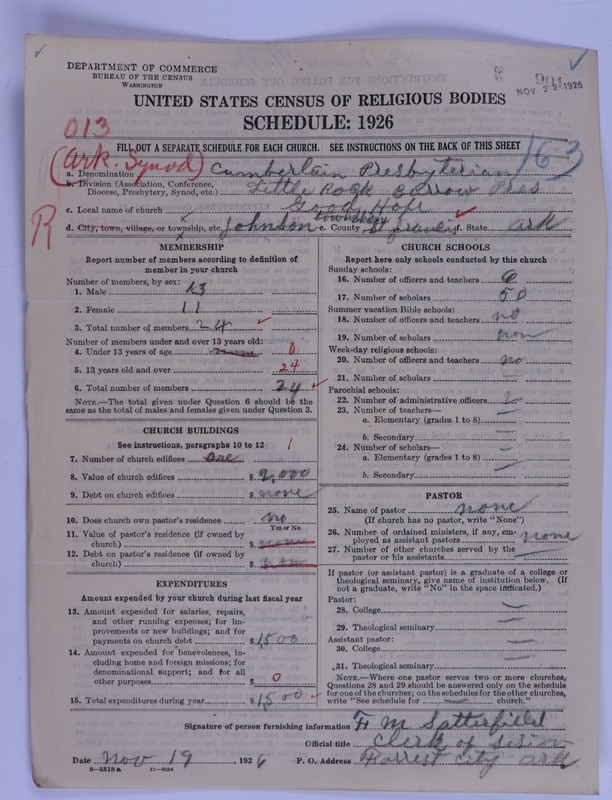 DEPARTMENT OF COMMERCE
BUREAU OF THE CENSUS
WASHINGTON
901
NOV 22 1926
UNITED STATES CENSUS OF RELIGIOUS BODIES
SCHEDULE: 1926
013
FILL OUT A SEPARATE SCHEDULE FOR EACH CHURCH. SEE INSTRUCTIONS ON THE BACK OF THIS SHEET
163
(Ark. Synod)
a. Denomination Cumberlain Presbyterian
b. Division (Association, Conference, Diocese, Presbytery, Synod, etc.) Little Rock Burrow Pres
c. Local name of church
d. City, town, village, or township, etc. Johnson township e. County St francis f. State Ark
R
MEMBERSHIP
Report number of members according to definition of
member in your church
Number of members, by sex:
1. Male 13
2. Female 11
3. Total number of members 24
Number of members under and over 13 years old:
4. Under 13 years of age none 0
5. 13 years old and over 24
6. Total number of members 24
NOTE.—The total given under Question 6 should be the
same as the total of males and females given under Question 3.
CHURCH BUILDINGS
See instructions, paragraphs 10 to 12
7. Number of church edifices one 1
8. Value of church edifices $ 2,000
9. Debt on church edifices $ none
10. Does church own pastor's residence no
Yes or No
11. Value of pastor's residence (if owned by
church) $ none
12. Debt on pastor's residence (if owned by
church) $ none
EXPENDITURES
Amount expended by your church during last fiscal year
13. Amount expended for salaries, repairs,
and other running expenses; for im-
provements or new buildings; and for
payments on church debt $ 1500
14. Amount expended for benevolences, in-
cluding home and foreign missions; for
denominational support; and for all
other purposes $ 0
15. Total expenditures during year $ 1500
CHURCH SCHOOLS
Report here only schools conducted by this church
Sunday schools:
16. Number of officers and teachers
17. Number of scholars 50
Summer vacation Bible schools:
18. Number of officers and teachers no
19. Number of scholars non
Week-day religious schools:
20. Number of officers and teachers no
21. Number of scholars
Parochial schools:
22. Number of administrative officers
23. Number of teachers—
a. Elementary (grades 1 to 8)
b. Secondary
24. Number of scholars—
a. Elementary (grades 1 to 8)
b. Secondary
PASTOR
25. Name of pastor none
(If church has no pastor, write "None")
26. Number of ordained ministers, if any, em-
ployed as assistant pastors none
27. Number of other churches served by the
pastor or his assistants
If pastor (or assistant pastor) is a graduate of a college or
theological seminary, give name of institution below. (If
not a graduate, write "No" in the space indicated.)
Pastor:
28. College
29. Theological seminary
Assistant pastor:
30. College
31. Theological seminary
NOTE.—Where one pastor serves two or more churches,
Questions 28 and 29 should be answered only on the schedule
for one of the churches; on the schedules for the other churches,
write "See schedule for church."
Signature of person furnishing information M Satterfield
Official title Clerk of session
Date Nov 19, 1926 P. O. Address Forrest City Ark
8—5518a 11—9054